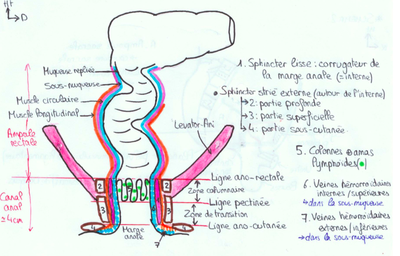 Ht
D
Muqueuse repliée
Sous-muqueuse
Muscle circulaire
Muscle longitudinal
Ampoule rectale
Canal anal
≈4cm
Levator Ani
Ligne ano-rectale
Zone columnaire
Ligne pectinée
Zone de transition
Ligne ano-cutanée
Marge anale
2
2
3
3
4
7
1. Sphincter lisse : corrugateur de
la marge anale (=interne)
• Sphincter strié externe (autour de l'interne)
→2: partie profonde
→3: partie superficielle
→4: partie sous-cutanée
5. Colonnes amas
lymphoïdes
6. Veines hémorroïdaires
internes/supérieures
dans la sous-muqueuse
7. Veines hémorroïdaires
externes/inférieures
→dans la sous-muqueuse